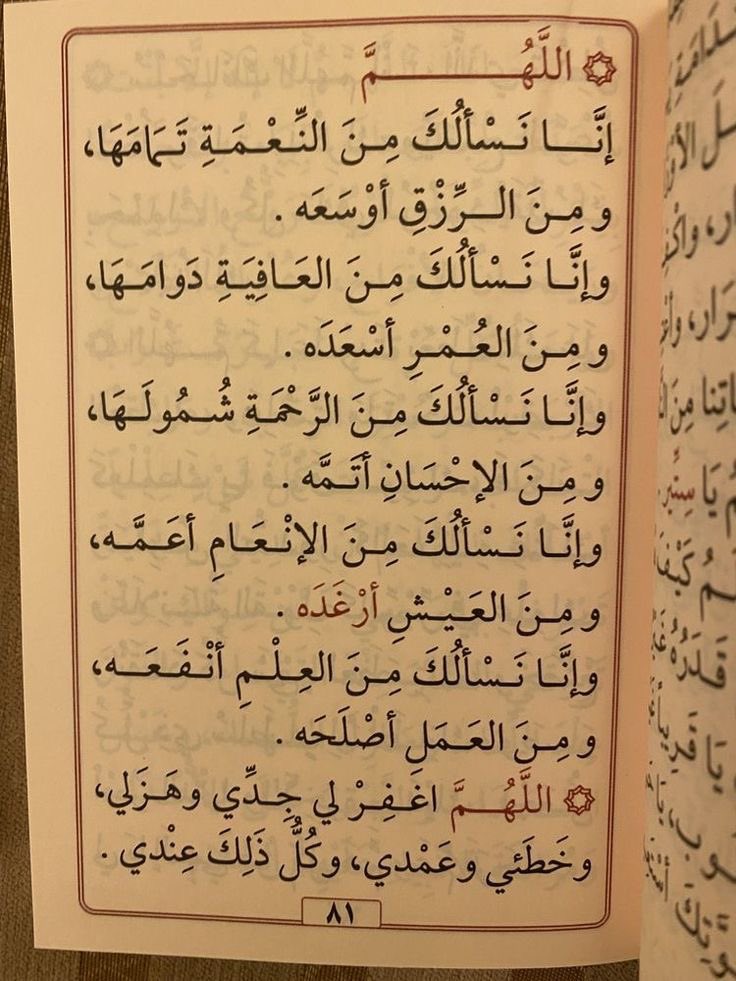 ۞ اللَّهُـــــــــمَّ
إنَّـــا نَـسْألُكَ مِـنَ النِّـعْـمَـةِ تَـمَامَهَا،
و مِـنَ الـرِّزْقِ أوْسَعَه .
وإنَّـا نَـسْألُكَ مِـنَ العَـافِيَـةِ دَوامَـهَـا،
و مِـنَ العُـمْـرِ أسْعَدَه .
وإنَّـا نَـسْألُكَ مِـنَ الرَّحْمَةِ شُـمُولَـهَا،
و مِـنَ الإحْسَانِ أتَـمَّه .
وإنَّـا نَـسْألُكَ مِـنَ الإنْـعَـامِ أعَـمَّـه،
و مِـنَ العَـيْـشِ أرْغَدَه .
وإنَّـا نَـسْألُكَ مِـنَ العِـلْـمِ أنْـفَـعَـه،
و مِـنَ العَـمَلِ أصْلَحَه .
۞ اللَّهُــمَّ اغْـفِـرْ لي جِـدِّي وهَـزَلي،
وخَطَئي وعَمْدي، وكُلُّ ذَلِكَ عِنْدي .
٨١